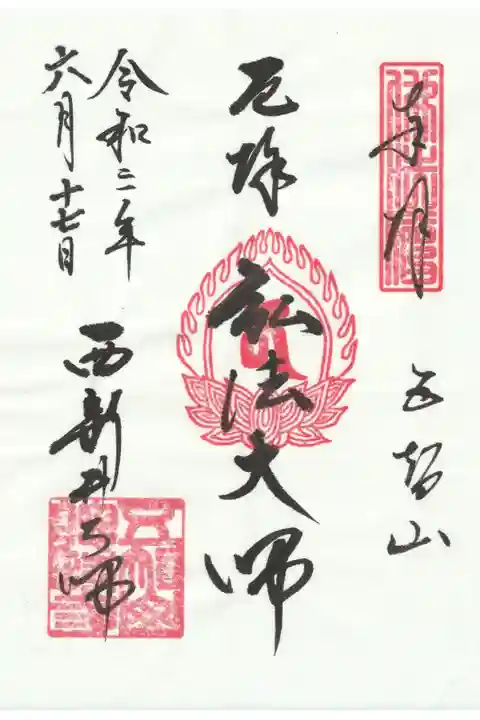 奉拝
五智山
厄除
弘法大師
令和二年
六月十七日
西新井大師